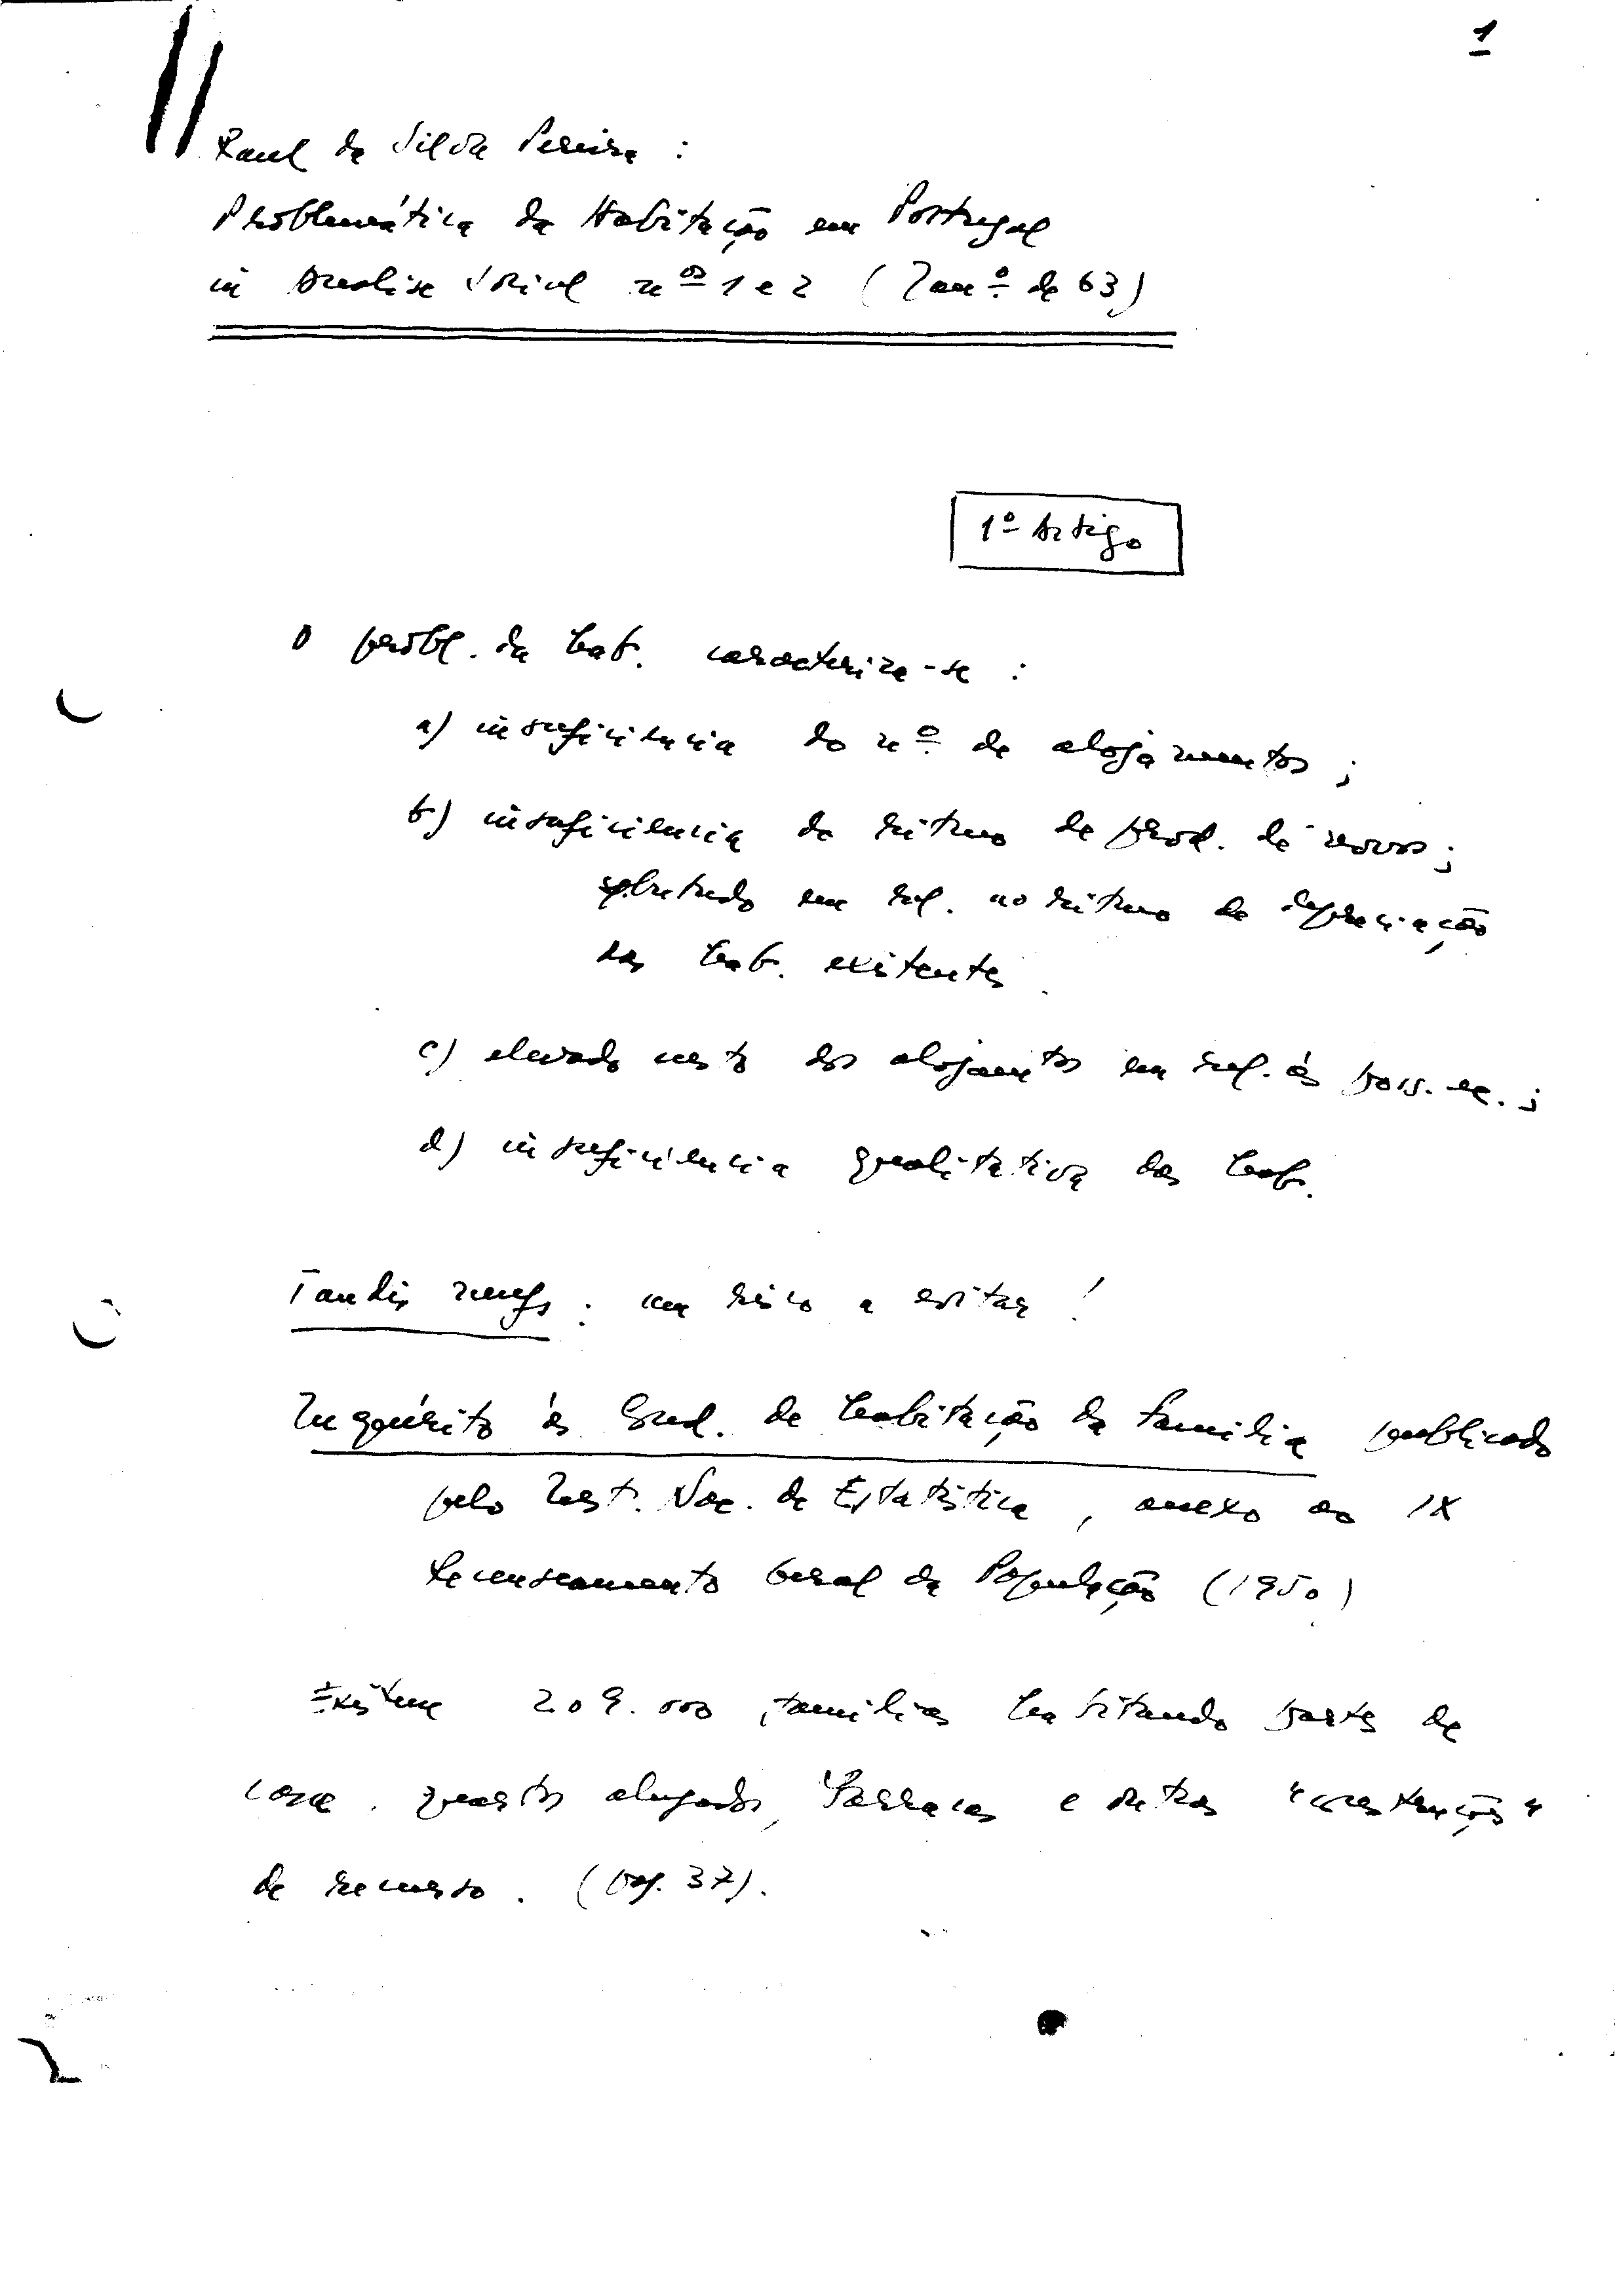 1
Raul da Silva Pereira :
Problemática da Habitação em Portugal
in Análise Social nºs 1 e 2 (Janº de 63)
1º Artigo
O probl. da hab. caracteriza-se :
a) insuficiencia do nº de alojamentos ;
b) insuficiencia do ritmo de prod. de novos ;
sobretudo em rel. ao ritmo de depreciação
das hab. existentes.
c) elevado custo dos alojamtos em rel. às poss. ec. ;
d) insuficiencia qualitativa das hab.
: um risco a evitar !
Inquérito às Cond. de Habitação da Familia publicado
pelo Inst. Nac. de Estatística, anexo ao IX
Recenseamento Geral da População (1950)
Existem 209.000 familias habitando partes de
casa, quartos alugados, barracas e outras "construções"
de recurso. (pag. 37).